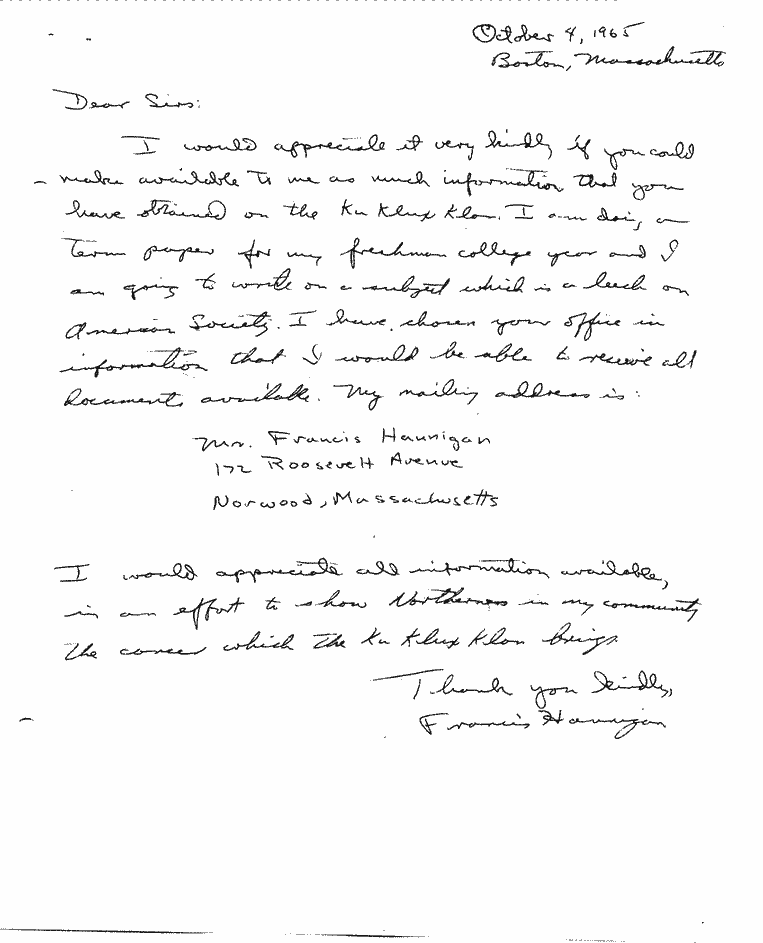 October 4, 1965
Boston, Massachusetts
Dear Sirs:
I would appreciate it very kindly if you could
make available to me as much information that you
have obtained on the Ku Klux Klan. I am doing a
term paper for my freshman college year and I
am going to write on a subject which is a leech on
American Society. I have chosen your office in
information that I would be able to receive all
documents available. My mailing address is:
Mr. Francis Haunigan
172 Roosevelt Avenue
Norwood, Massachusetts
I would appreciate all information available,
in an effort to show Northerners in my community
the cancer which the Ku Klux Klan brings.
Thank you kindly,
Francis Haunigan